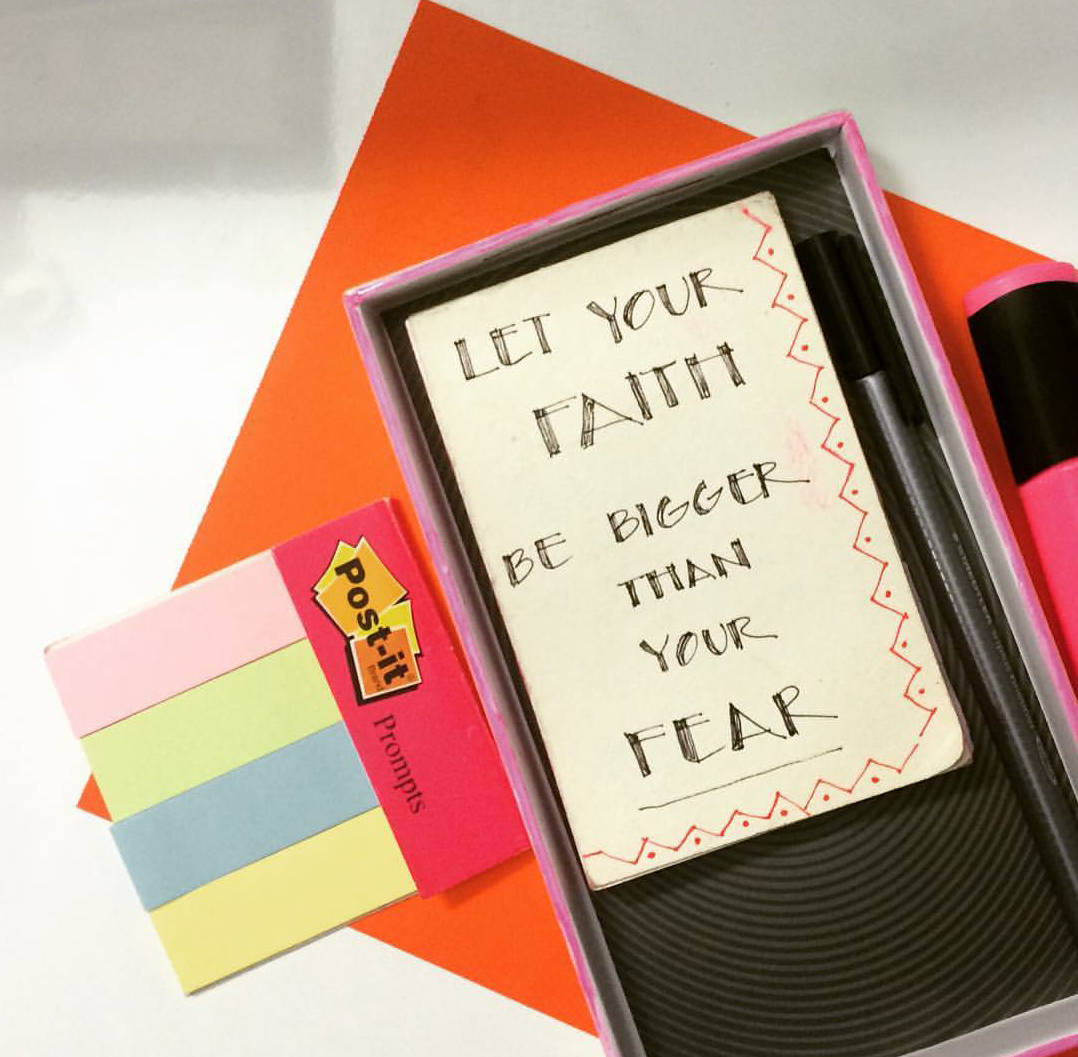 LET YOUR
FAITH
BE BIGGER
THAN
YOUR
FEAR
Post-it
Brand
Prompts